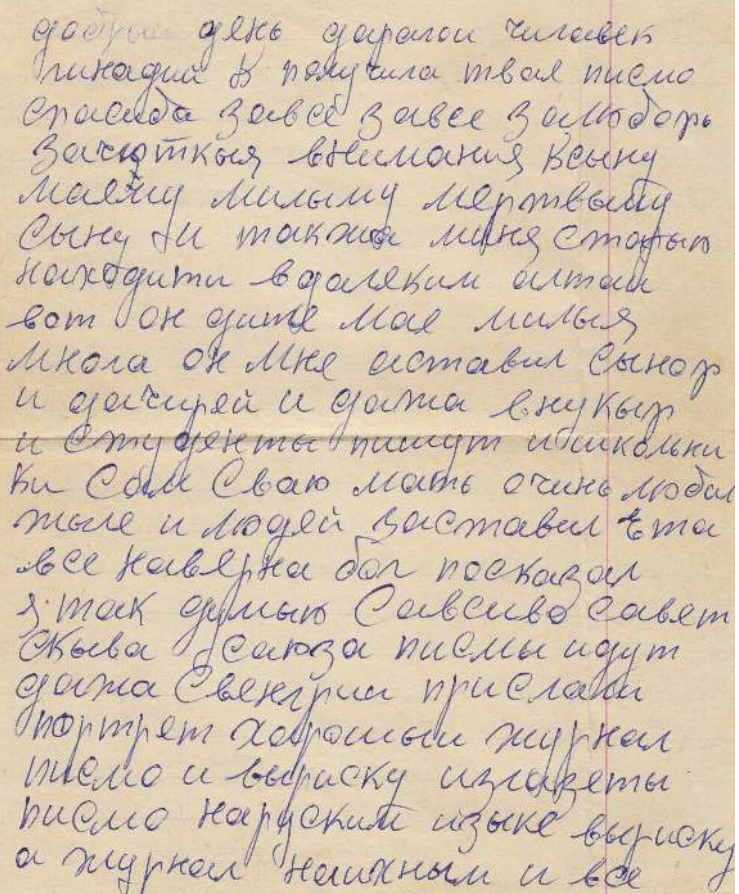 добрый день дарагои чиловек
гинадий я получила твая писмо
спасиба завсё завсе залюбовь
зачюткыя внимания ксыну
маему милыму мертвыму
сыну и такжа миня старыю
находити вдалеким алтаи
вот он дитё мае милыя
многа он мне аставил сынов
и дачирей и дажа внукыв
и студенты пишут ишкольни
ки Сам Сваю мать очинь любил
тыле и людей заставил ета
все наверна бог посказал
я так думыю Савсиво Савет
скыва Саюза писмы идут
дажа Свенгрии прислали
портрет хароший журнал
писмо и выриску изгазеты
писмо наруским изыке выриску
а журнал наихным и все